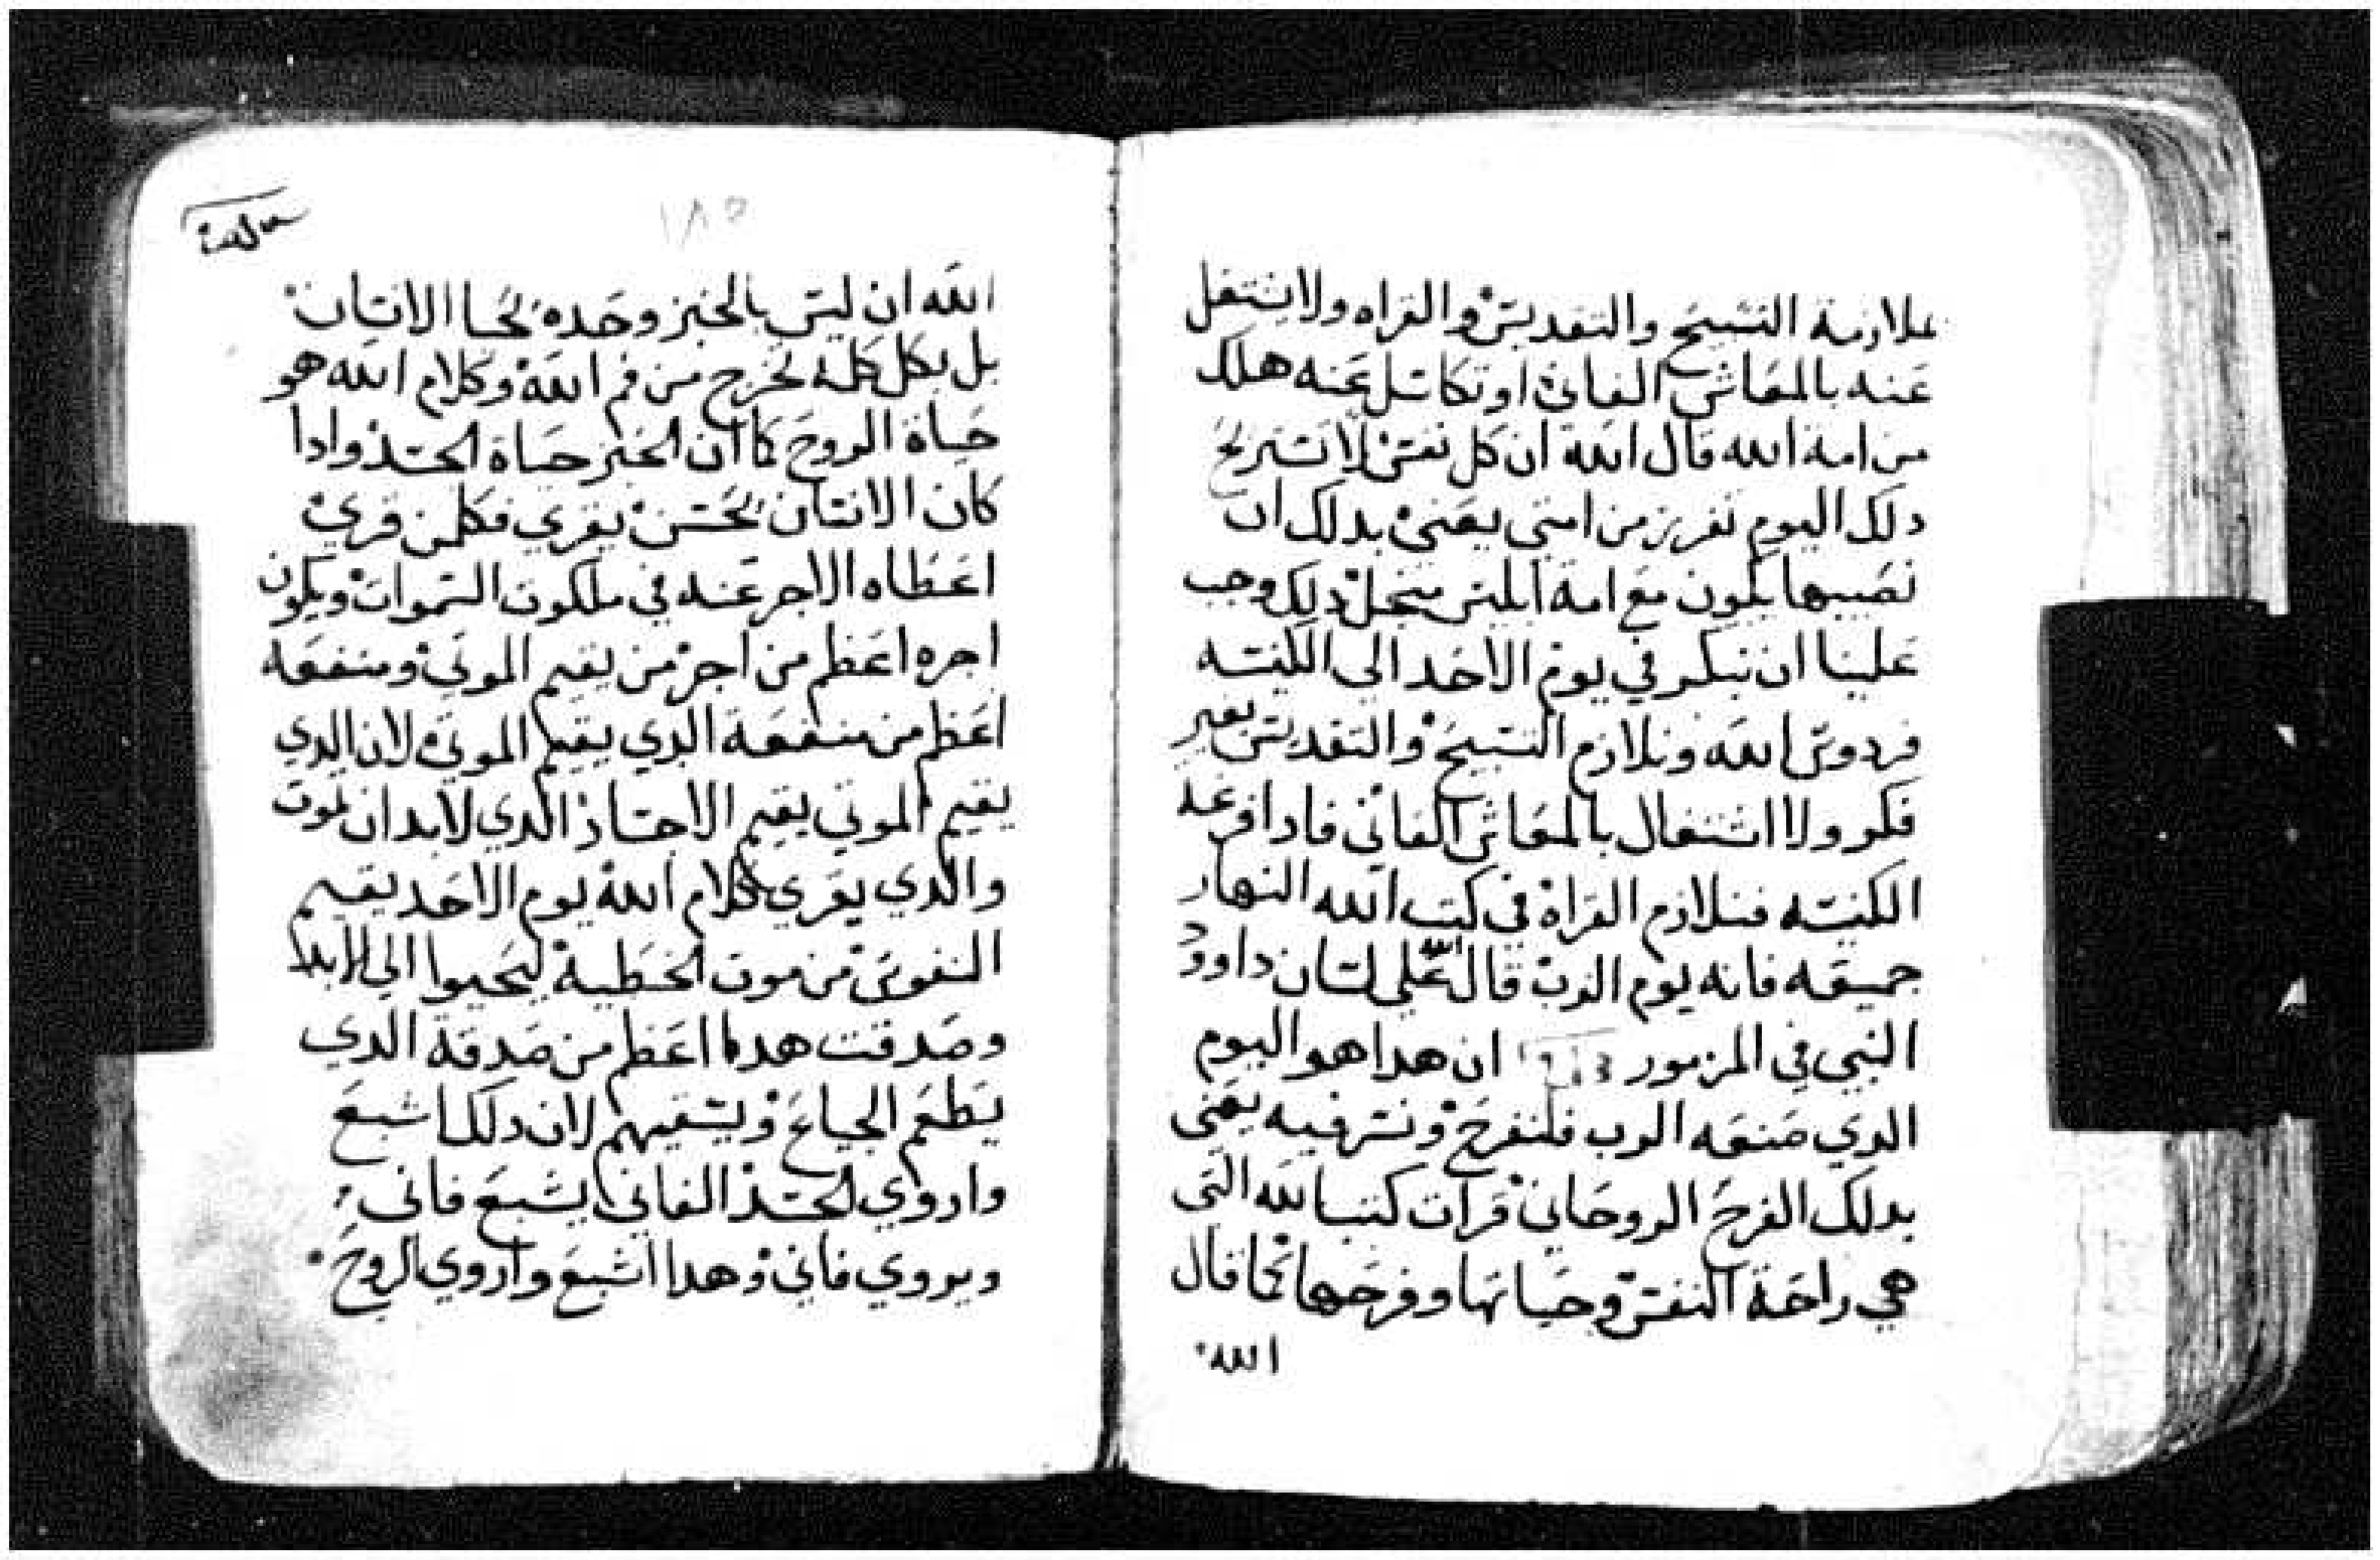 ملازمة التسبيح والتقديس والقراه ولا نشتغل
عنه بالمعاش الفاني او تكاسل عنه هلك
من امة الله قال الله ان كل نفس لا تستريح
دلك اليوم تفرز من امتي يعني بدلك ان
نصيبها يكون مع امة ابليس دلك وجب
علينا ان نبكر في يوم الاحد الي الكنيسه
فردوس الله ونلازم التسبيح والتقديس بغير
فكر ولا اشتغال بالمعاش الفاني فادا فرغ
الكنيسه فنلازم القراة في كتب الله النهار
جميعه فانه يوم الرب قال الله علي لسان داوود
النبي في المزمور ان هدا هو اليوم
الدي صنعه الرب فلنفرح ونسر فيه يعني
بدلك الفرح الروحاني قرات كتب الله التي
هي راحة النفس وحياتها وفرحها كما قال
الله
١٨٥
الله ان ليس بالخبز وحده يحيا الانسان
بل بكل كلمة تخرج من فم الله وكلام الله هو
حياة الروح كما ان الخبز حياة الجسد وادا
كان الانسان يحسن يقري فكلمن قري
اعطاه الاجر عنه في ملكوت السموات ويكون
اجره اعظم من اجر من يقيم الموتي ومنفعة
اعظم من منفعة الدي يقيم الموتي لان الدي
يقيم الموتي يقيم الاجساد الدي لابد ان تموت
والدي يقري كلام الله يوم الاحد يقيم
النفوس من موت الخطية ليحيوا الي الابد
وصدقت هدا اعظم من صدقة الدي
يطعم الجياع ويسقيهم لان دلك اشبع
واروي الجسد الفاني يشبع فاني
ويروي فاني وهدا اشبع واروي الروح